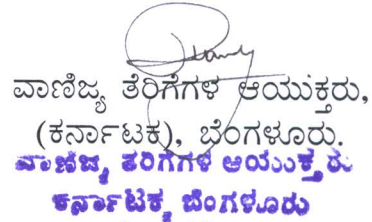 ವಾಣಿಜ್ಯ ತೆರಿಗೆಗಳ ಆಯುಕ್ತರು,
(ಕರ್ನಾಟಕ), ಬೆಂಗಳೂರು.
ವಾಣಿಜ್ಯ ತೆರಿಗೆಗಳ ಆಯುಕ್ತರು
ಕರ್ನಾಟಕ ಬೆಂಗಳೂರು